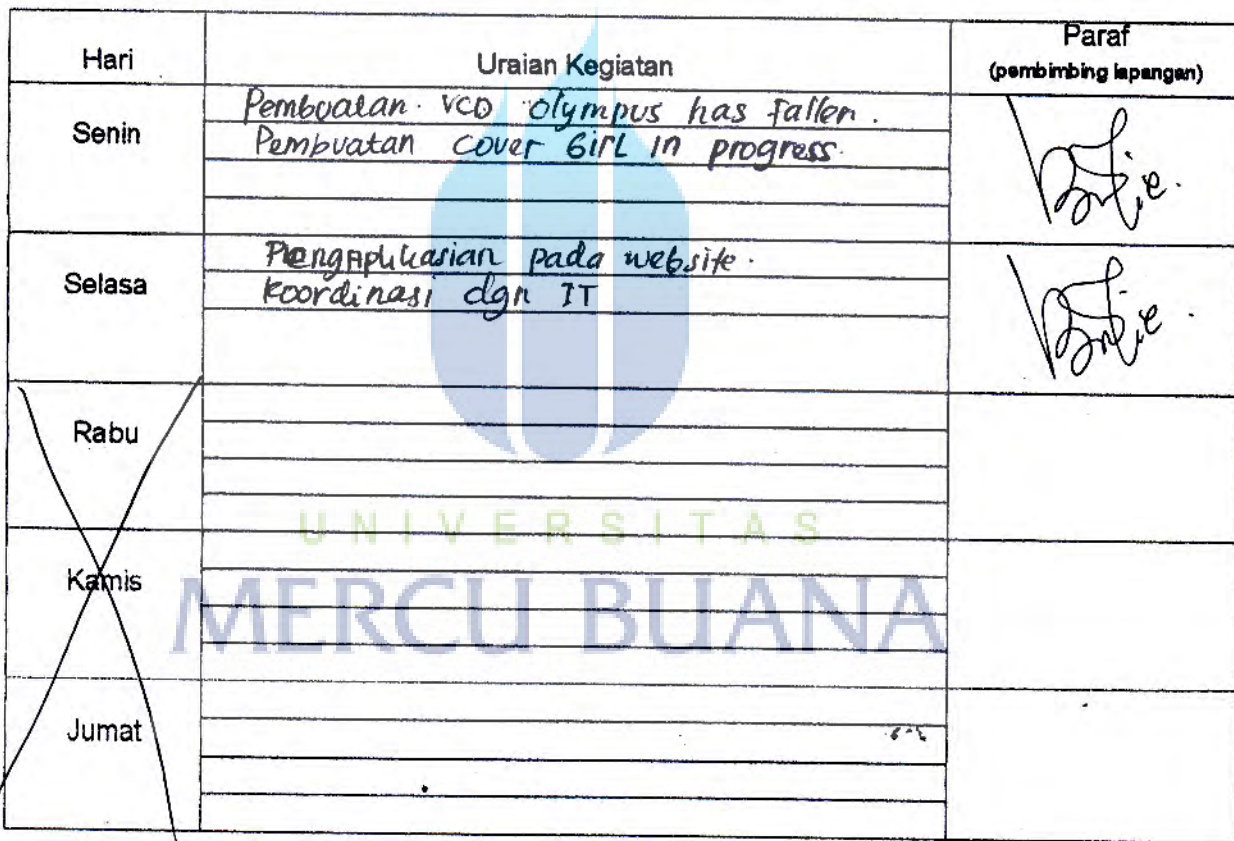 Hari Uraian Kegiatan Paraf
(pembimbing lapangan)
Senin
Pembuatan. VCD olympus has fallen.
Pembuatan cover Girl in progress.
Selasa
Pengaplikasian pada website.
Koordinasi dgn IT
Rabu
UNIVERSITAS
Kamis
MERCU BUANA
Jumat